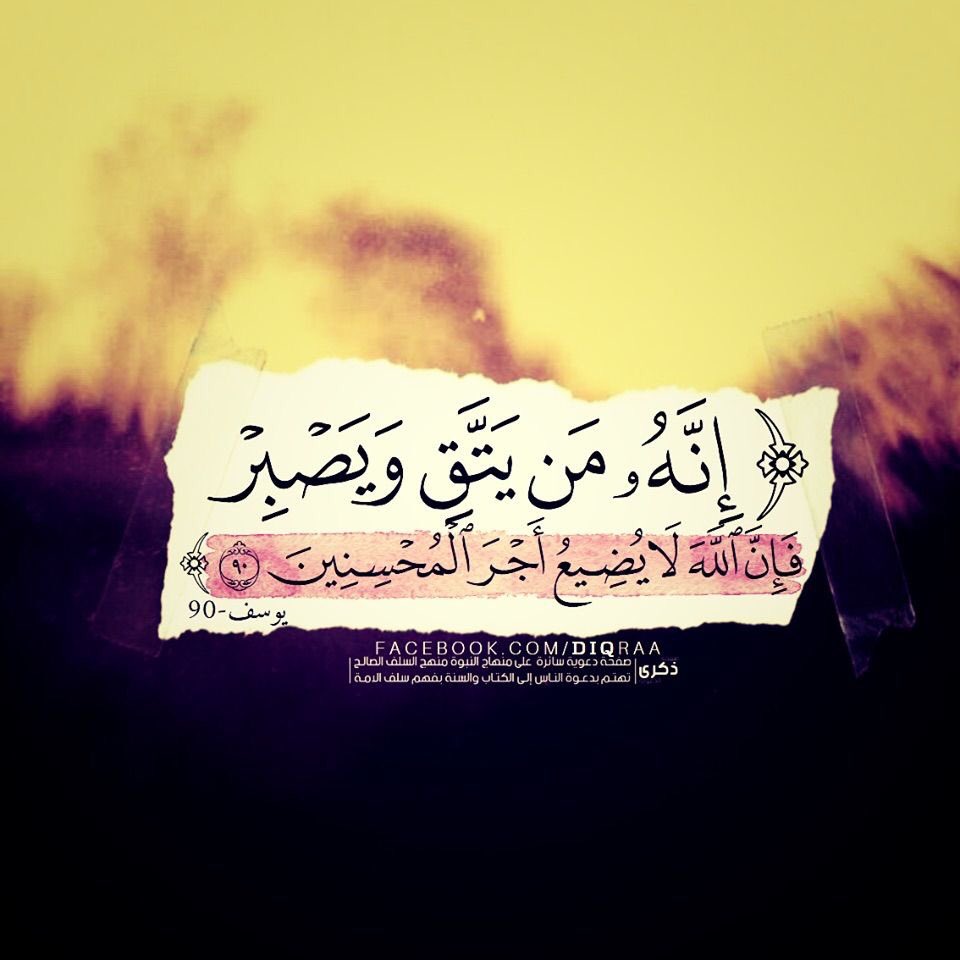 ﴿ إِنَّهُۥ مَن يَتَّقِ وَيَصْبِرْ
فَإِنَّ ٱللَّهَ لَا يُضِيعُ أَجْرَ ٱلْمُحْسِنِينَ ٩٠ ﴾
يوسف-90
FACEBOOK.COM/DIQRAA
ذكرى
صفحة دعوية سائرة على منهاج النبوة منهج السلف الصالح
تهتم بدعوة الناس إلى الكتاب والسنة بفهم سلف الامة